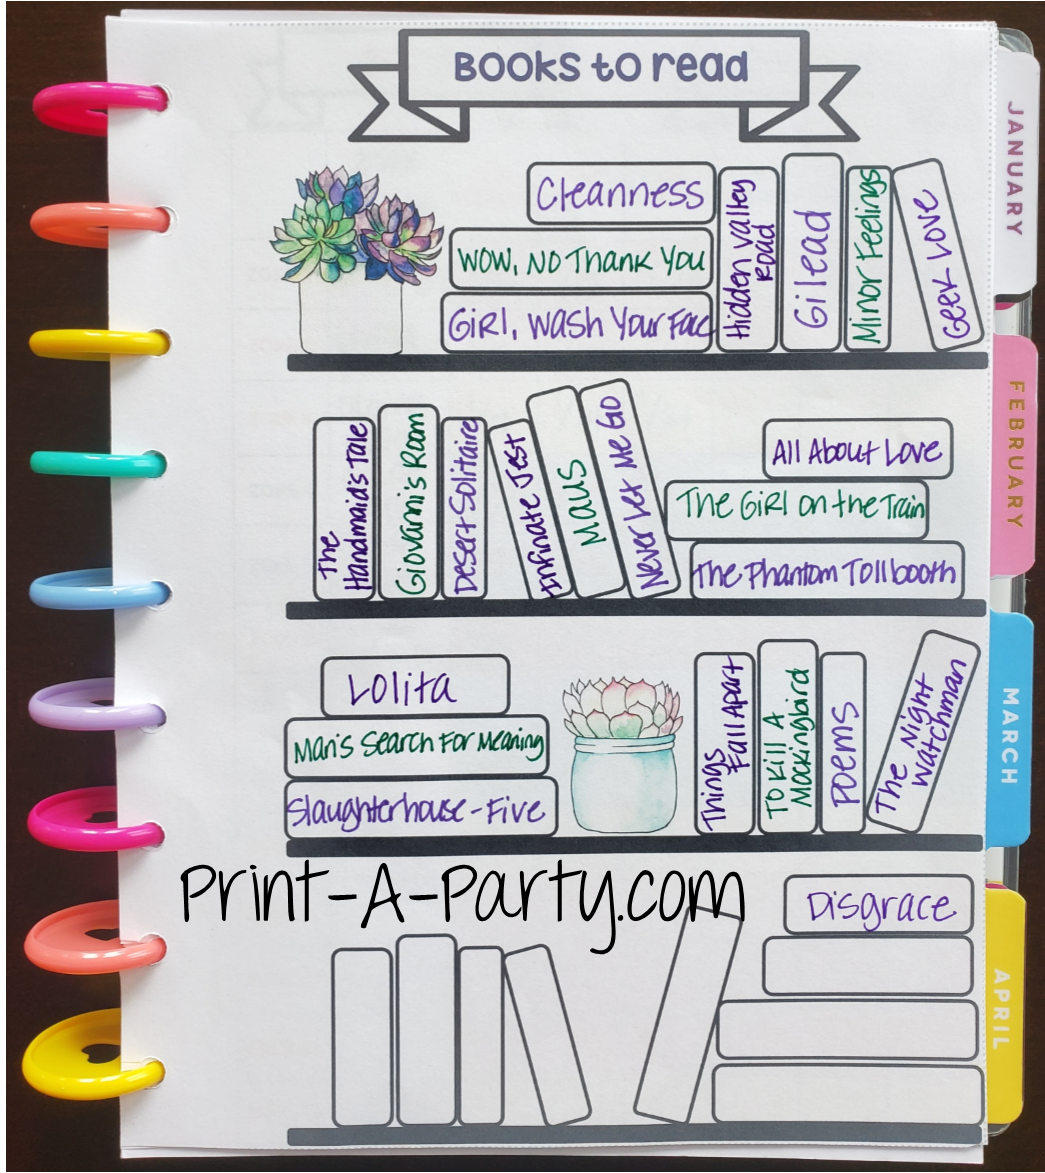 BOOKS to read
Cleanness
WOW, NO THANK YOU
GIRL, WASH YOUR FACE
Hidden Valley
Road
Gilead
Minor Feelings
GEEK LOVE
The
Handmaids Tale
Giovanni's Room
Desert Solitaire
Infinate Jest
MAUS
Never Let Me Go
All About Love
The GIRL on the Train
The Phantom Tollbooth
Lolita
Man's Search For Meaning
Slaughterhouse-Five
Things
Fall Apart
TO KILL A
Mockingbird
POEMS
The Night
Watchman
Disgrace
Print-A-Party.com
JANUARY
FEBRUARY
MARCH
APRIL